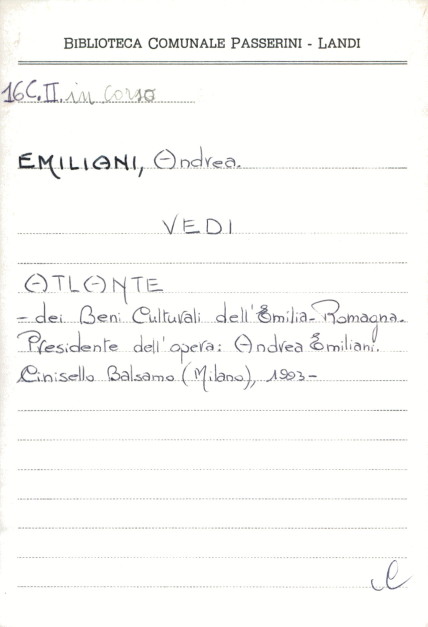 BIBLIOTECA COMUNALE PASSERINI - LANDI
16C.II. in corso
EMILIANI, Andrea.
VEDI
ATLANTE
- dei Beni Culturali dell'Emilia-Romagna.
Presidente dell'opera: Andrea Emiliani.
Cinisello Balsamo (Milano), 1993-